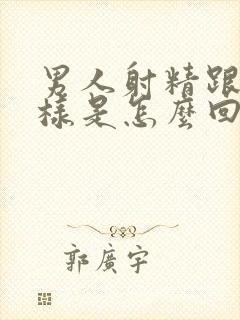 男人射精跟
樣是怎麼回
郭廣宇